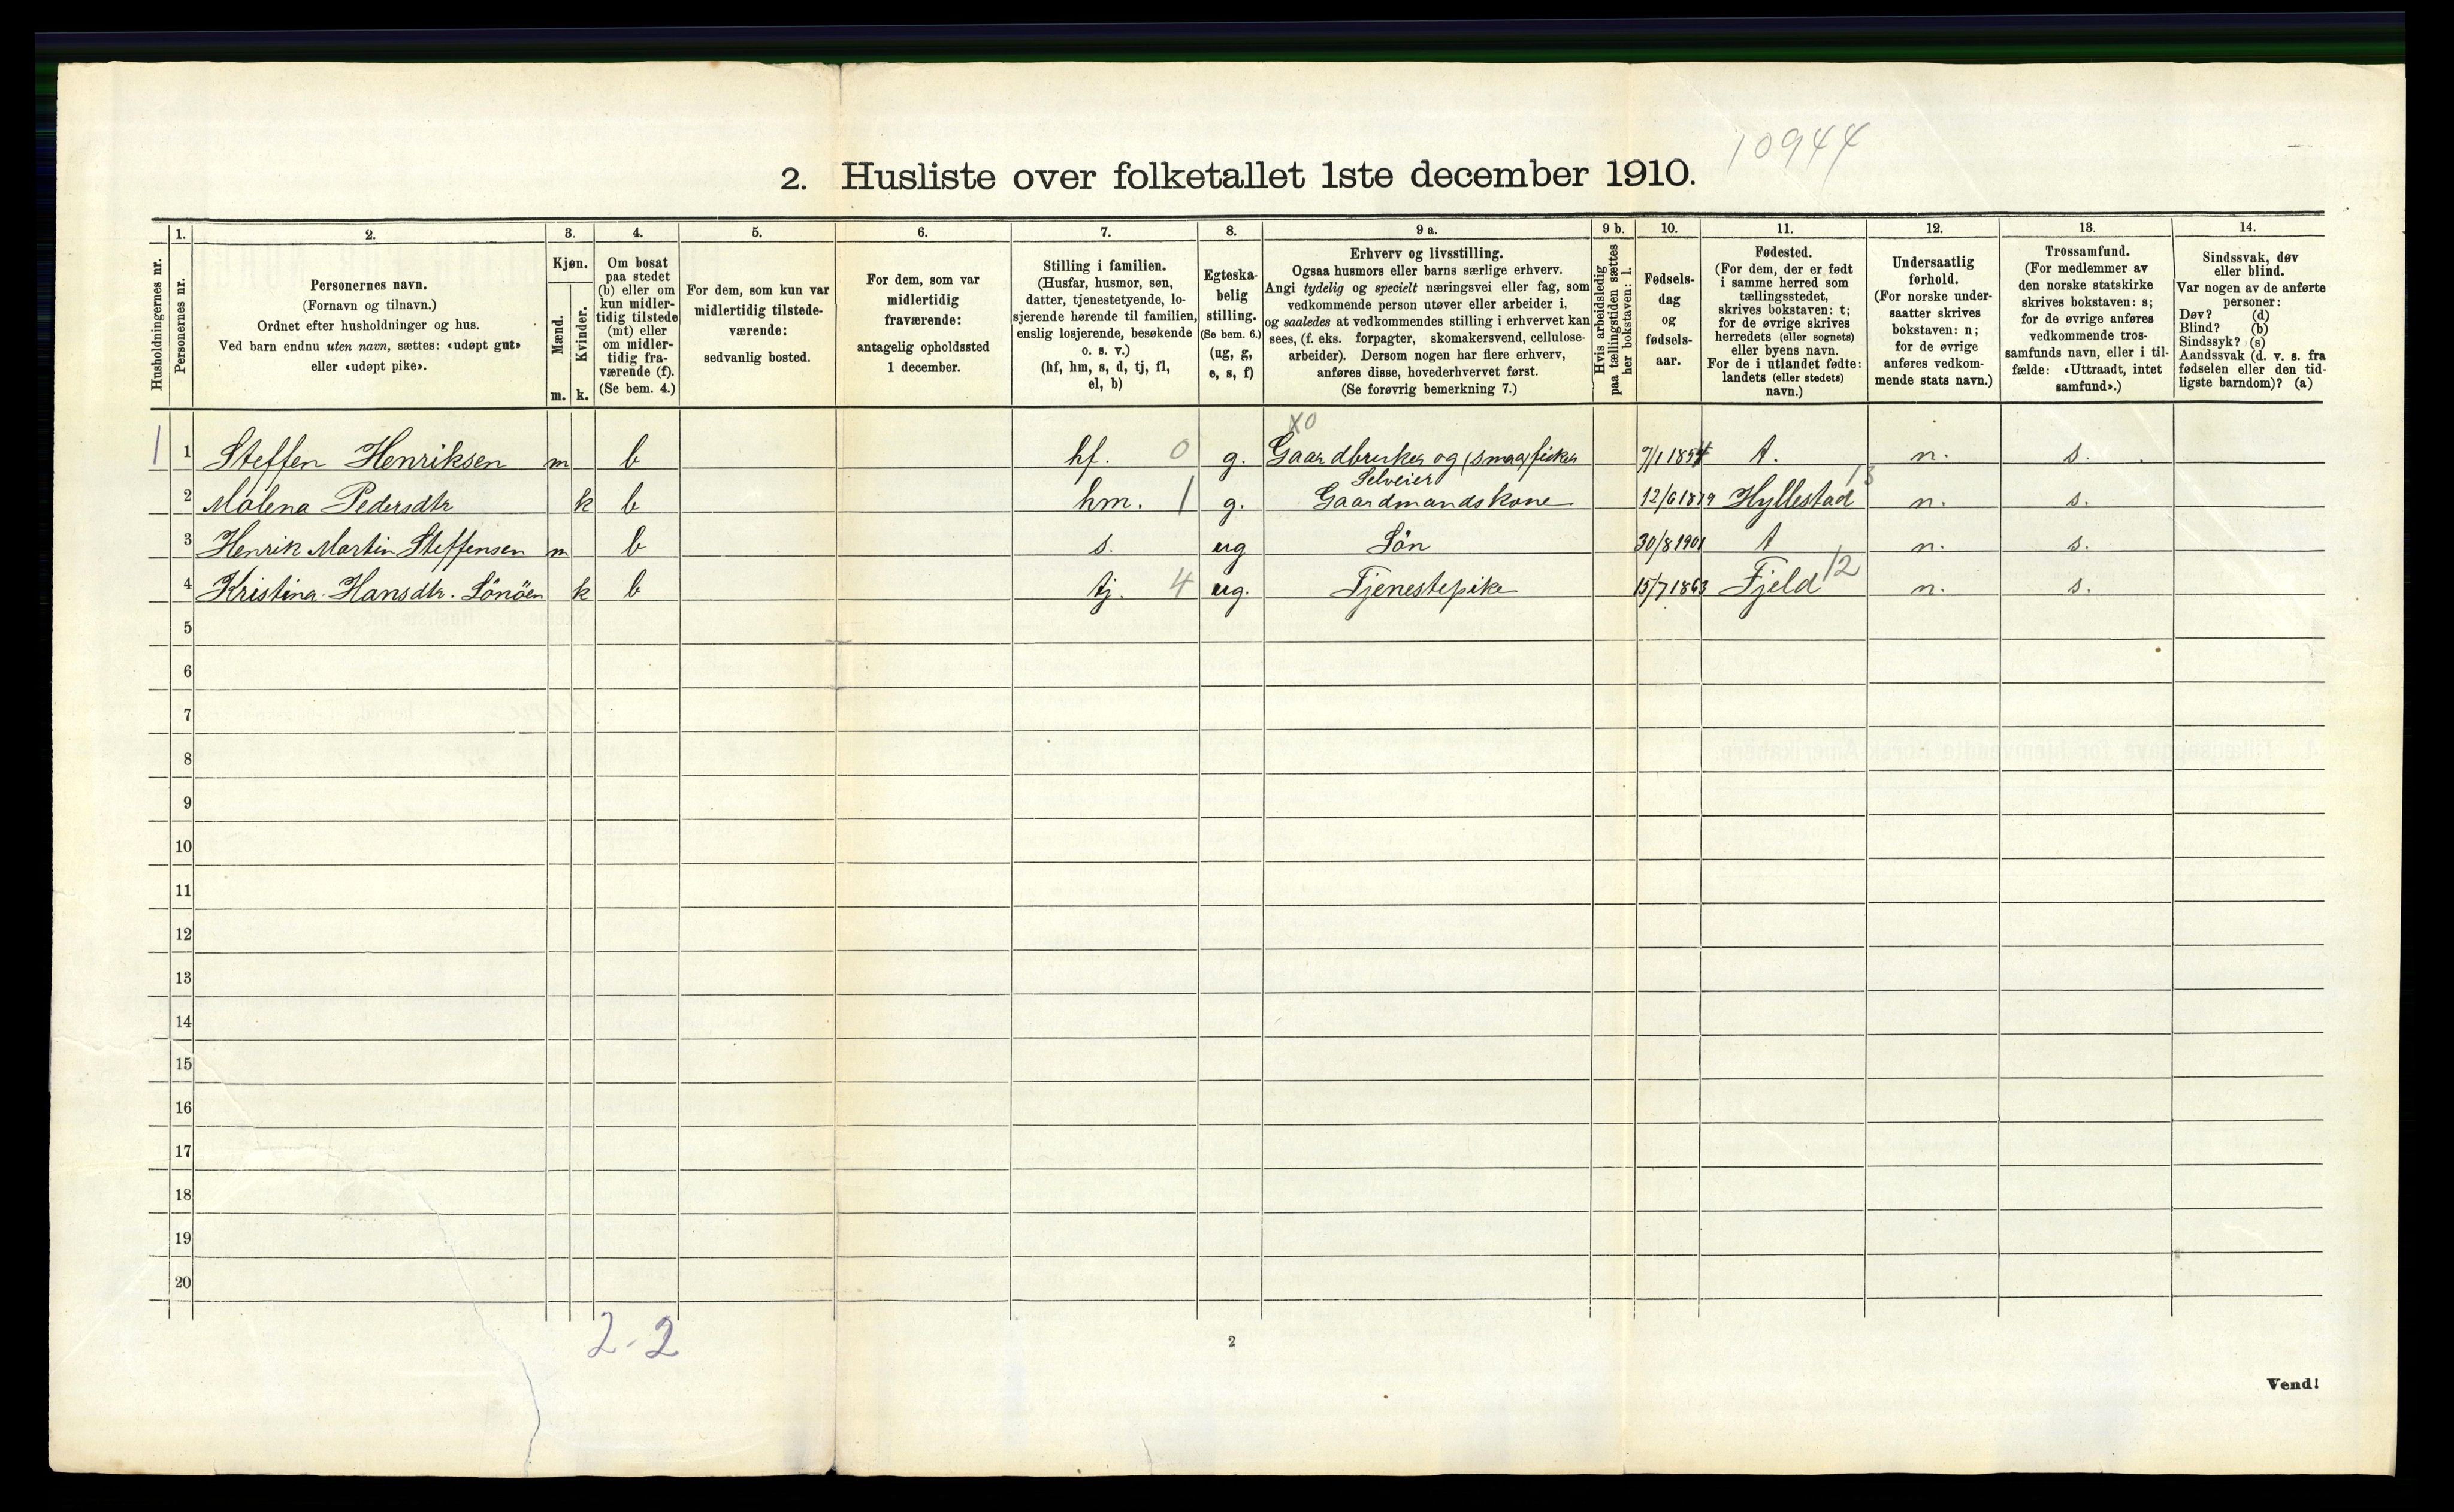 10944
2. Husliste over folketallet 1ste december 1910.
Husholdningernes nr.
1.
Personernes nr.
2.
Personernes navn.
(Fornavn og tilnavn.)
Ordnet efter husholdninger og hus.
Ved barn endnu uten navn, sættes: «udøpt gut»
eller «udøpt pike».
3.
Kjøn.
Mænd.
Kvinder.
m. k.
4.
Om bosat
paa stedet
(b) eller om
kun midler-
tidig tilstede
(mt) eller
om midler-
tidig fra-
værende (f).
(Se bem. 4.)
5.
For dem, som kun var
midlertidig tilstede-
værende:
sedvanlig bosted.
6.
For dem, som var
midlertidig
fraværende:
antagelig opholdssted
1 december.
7.
Stilling i familien.
(Husfar, husmor, søn,
datter, tjenestetyende, lo-
sjerende hørende til familien,
enslig losjerende, besøkende
o. s. v.)
(hf, hm, s, d, tj, fl,
el, b)
8.
Egteska-
belig
stilling.
(Se bem. 6.)
(ug, g,
e, s, f)
9 a.
Erhverv og livsstilling.
Ogsaa husmors eller barns særlige erhverv.
Angi tydelig og specielt næringsvei eller fag, som
vedkommende person utøver eller arbeider i,
og saaledes at vedkommendes stilling i erhvervet kan
sees, (f. eks. forpagter, skomakersvend, cellulose-
arbeider). Dersom nogen har flere erhverv,
anføres disse, hovederhvervet først.
(Se forøvrig bemerkning 7.)
9 b.
Hvis arbeidsledig
paa tællingstiden sættes
her bokstaven: l.
10.
Fødsels-
dag
og
fødsels-
aar.
11.
Fødested.
(For dem, der er født
i samme herred som
tællingsstedet,
skrives bokstaven: t;
for de øvrige skrives
herredets (eller sognets)
eller byens navn.
For de i utlandet fødte:
landets (eller stedets)
navn.)
12.
Undersaatlig
forhold.
(For norske under-
saatter skrives
bokstaven: n;
for de øvrige
anføres vedkom-
mende stats navn.)
13.
Trossamfund.
(For medlemmer av
den norske statskirke
skrives bokstaven: s;
for de øvrige anføres
vedkommende tros-
samfunds navn, eller i til-
fælde: «Uttraadt, intet
samfund».)
14.
Sindssvak, døv
eller blind.
Var nogen av de anførte
personer:
Døv? (d)
Blind? (b)
Sindssyk? (s)
Aandssvak (d. v. s. fra
fødselen eller den tid-
ligste barndom)? (a)
X0
1 1 Steffen Henriksen m b hf. 0 g. Gaardbruker og (smaa)fisker 7/1 1854 t. n. s.
Selveier 13
2 Malena Pedersdtr k b hm. 1 g. Gaardmandskone 12/6 1879 Hyllestad n. s.
3 Henrik Martin Steffensen m b s. ug Sön 30/8 1901 t n. s.
4 Kristina Hansdtr. Sönöen k b tj. 4 ug. Tjenestepike 15/7 1863 Fjeld 12 n. s.
5
6
7
8
9
10
11
12
13
14
15
16
17
18
19
20
2-2
2
Vend!